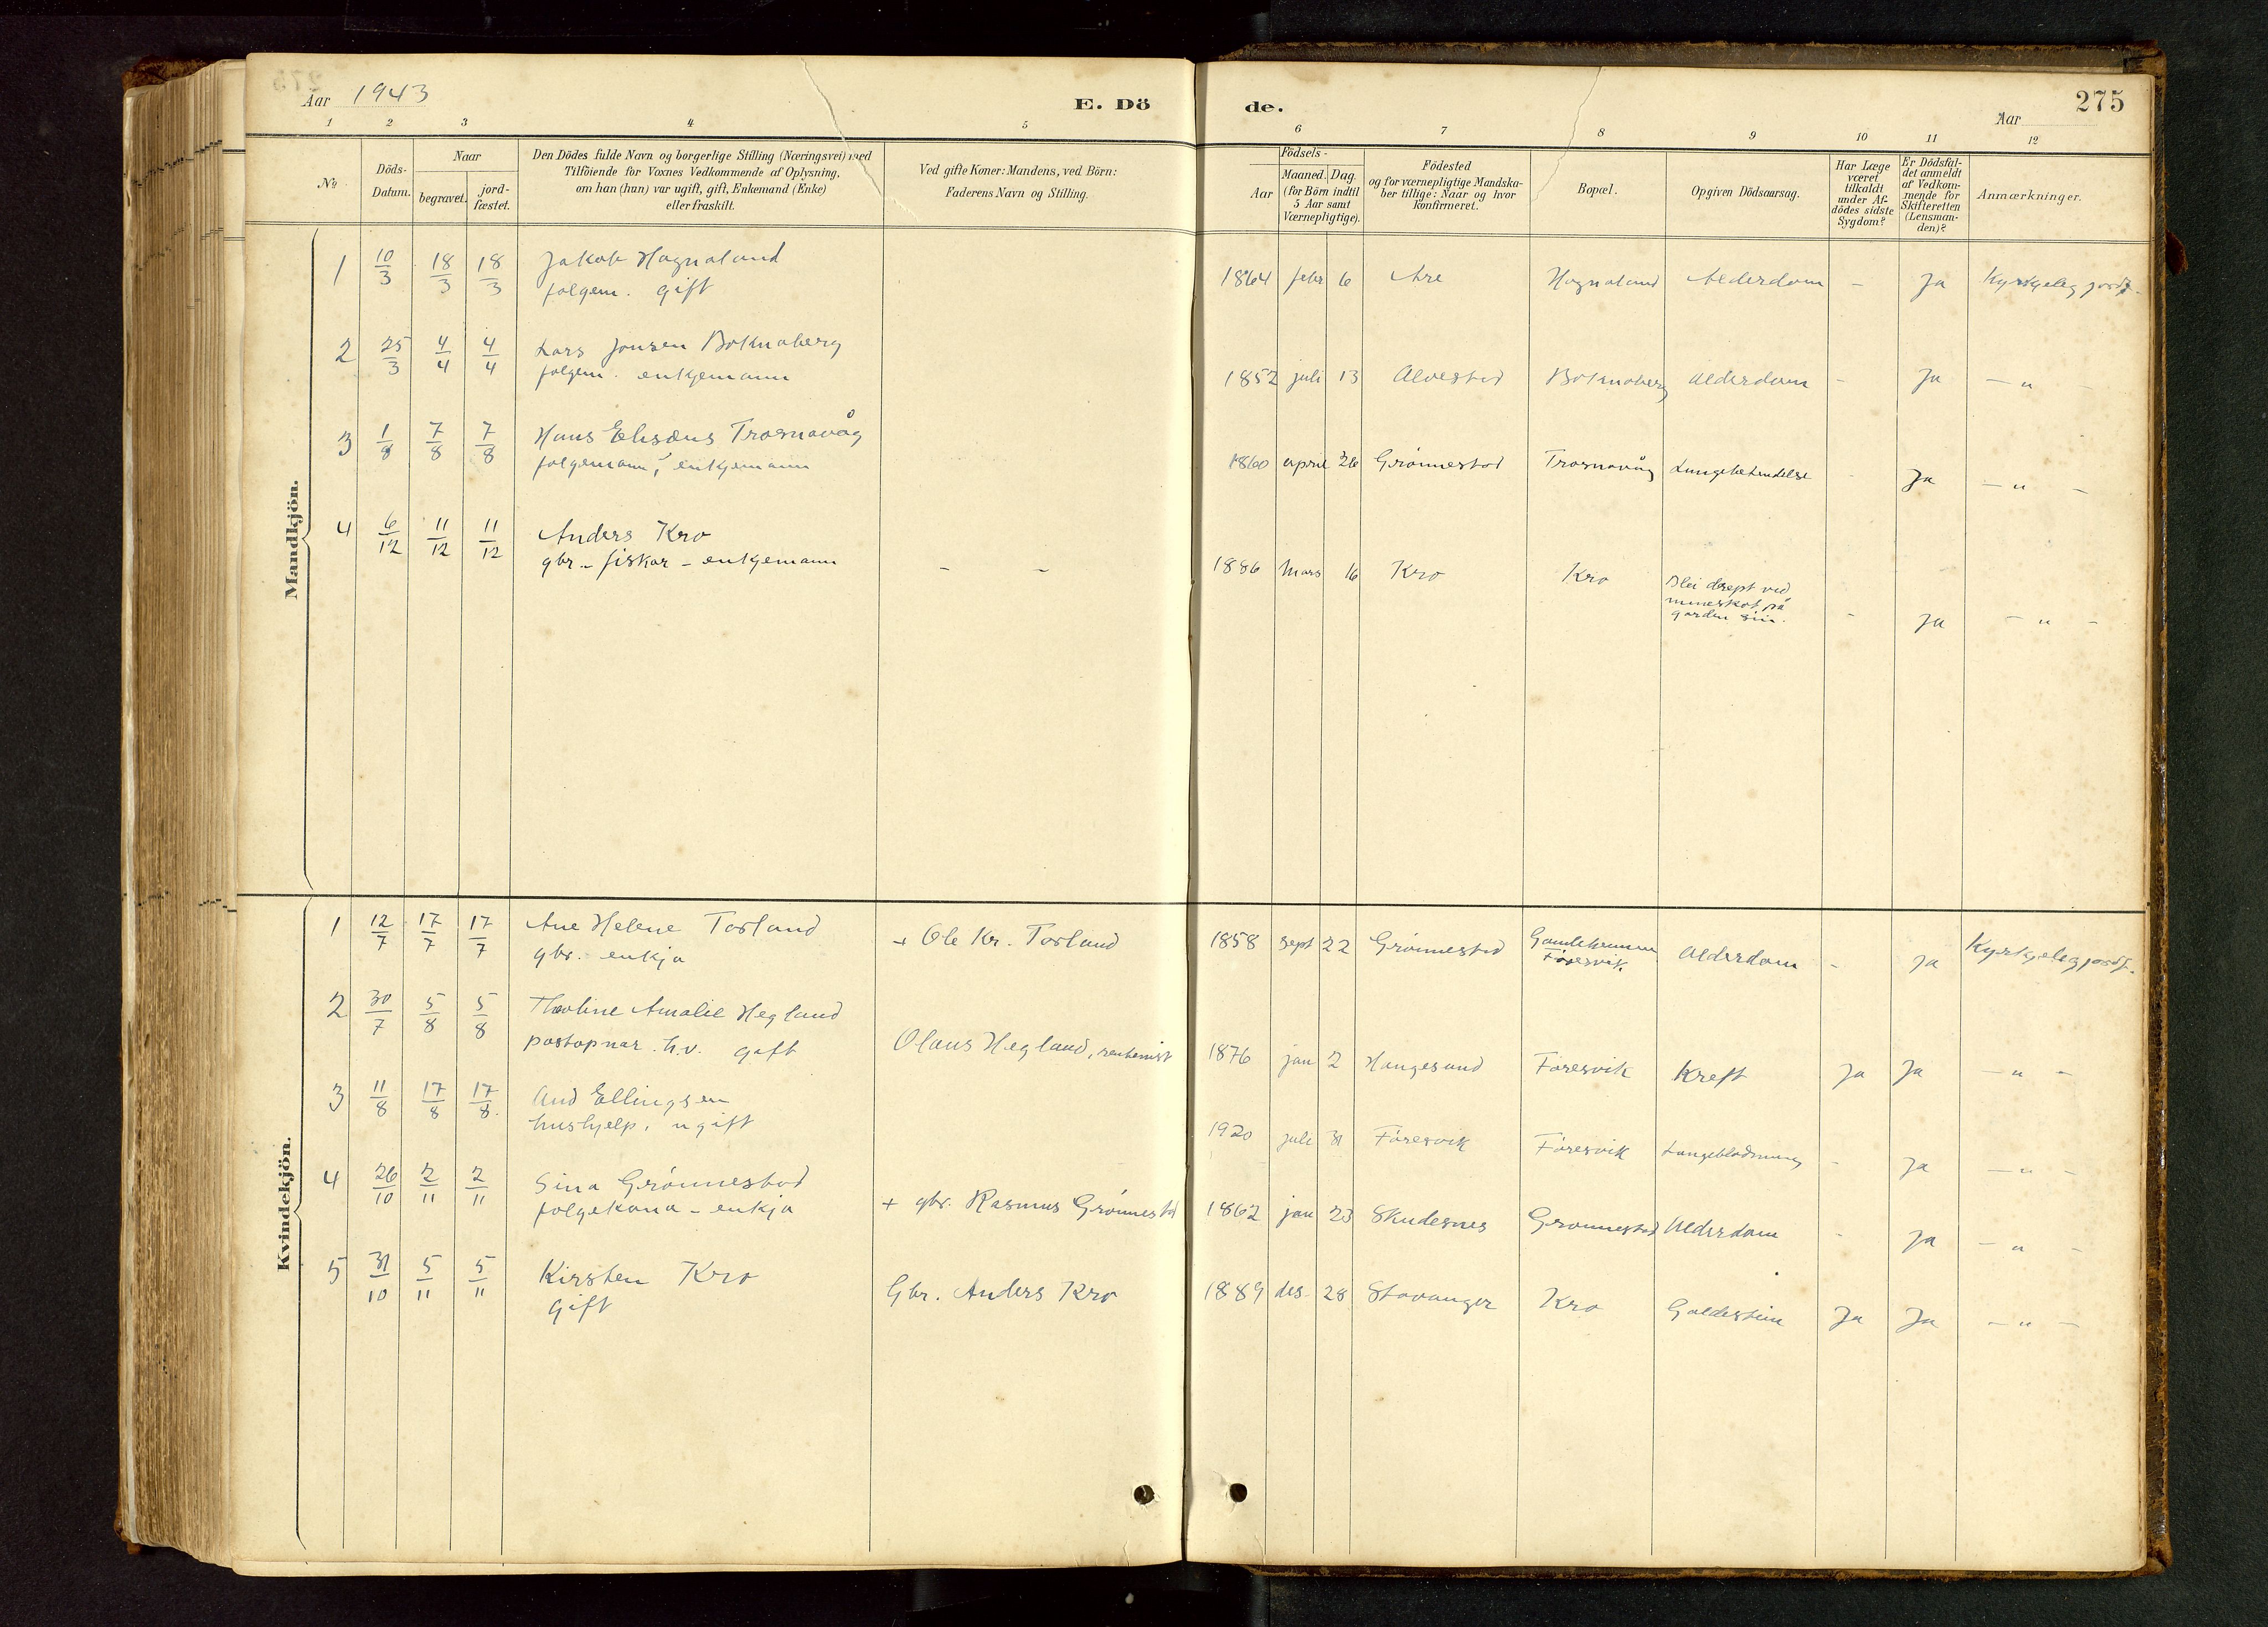 Aar 1943
E. Dö
de.
Aar
275
1 2 3 4 5 6 7 8 9 10 11 12
No
Döds-
Datum.
Naar
begravet.
jord-
fæstet.
Den Dödes fulde Navn og borgerlige Stilling (Næringsvei) med
Tilföiende for Voxnes Vedkommende af Oplysning,
om han (hun) var ugift, gift, Enkemand (Enke)
eller fraskilt.
Ved gifte Koner: Mandens, ved Börn:
Faderens Navn og Stilling.
Födsels-
Aar
Maaned. Dag.
(for Börn indtil
5 Aar samt
Værnepligtige).
Födested
og for værnepligtige Mandska-
ber tillige: Naar og hvor
konfirmeret.
Bopæl.
Opgiven Dödsaarsag.
Har Læge
været
tilkaldt
under Af-
dödes sidste
Sygdom?
Er Dödsfal-
det anmeldt
af Vedkom-
mende for
Skifteretten
(Lensman-
den)?
Anmærkninger.
Mandkjön.
1 10/3 18/3 18/3 Jakob Hognaland
folgem. gift
1864 febr 6 Are Hognaland Alderdom - Ja Kyrkjeleg jordf.
2 25/3 4/4 4/4 Lars Jonsen Boknaberg
folgem. enkjemann
1852 juli 13 Alvestad Boknaberg Alderdom - Ja - " -
3 1/8 7/8 7/8 Hans Elisæus Trosnavåg
folgemann, enkjemann
1860 april 26 Grønnestad Trosnavåg Lungebetendelse - Ja - " -
4 6/12 11/12 11/12 Anders Kro
gbr. - fiskar - enkjemann
- -
1886 mars 16 Kro Kro Blei drept ved
mineskot på
garden sin. - Ja - " -
Kvindekjön.
1 12/7 17/7 17/7 Ane Helene Torland
gbr. enkja
+ Ole Kr. Torland
1858 sept 22 Grønnestad
Føresvik. Alderdom - Ja Kyrkjeleg jordf.
2 30/7 5/8 5/8 Tholine Amalie Hegland
postopnar. h.v. gift
Olaus Hegland, rentenist
1876 jan 2 Haugesund Føresvik Kreft Ja Ja - " -
3 11/8 17/8 17/8. Aud Ellingsen
hushjelp. ugift
1920 juli 31 Føresvik Føresvik Lungeblødning - Ja - " -
4 26/10 2/11 2/11 Sina Grønnestad
folgekona - enkja
+ gbr. Rasmus Grønnestad
1862 jan 23 Skudesnes Grønnestad Alderdom - Ja - " -
5 31/10 5/11 5/11 Kirsten Kro
gift
Gbr. Anders Kro
1889 des. 28 Stavanger Kro Galdestein Ja Ja - " -